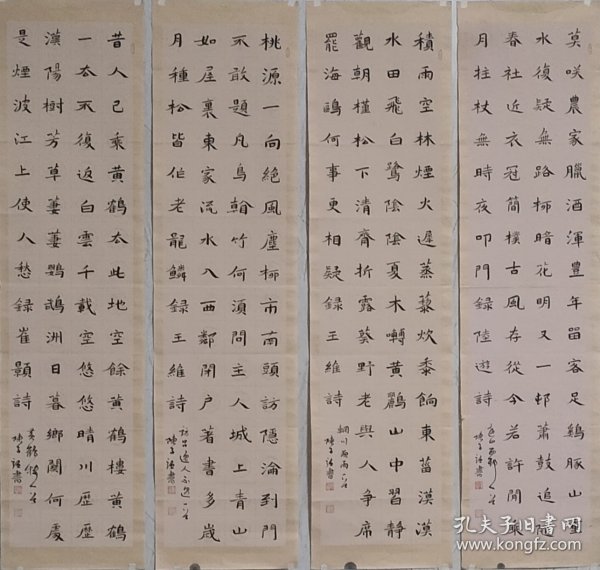 莫咲農家臘酒渾豐年留客足鷄豚山重
水復疑無路柳暗花明又一邨蕭鼓追隨
春社近衣冠簡樸古風存從今若許閒乘
月拄杖無時夜叩門録陸遊詩
積雨空林煙火遲蒸藜炊黍餉東菑漠漠
水田飛白鷺陰陰夏木囀黃鸝山中習靜
觀朝槿松下清齋折露葵野老與人爭席
罷海鷗何事更相疑録王維詩
桃源一向絕風塵柳市南頭訪隱淪到門
不敢題凡鳥看竹何須問主人城上青山
如屋裏東家流水入西鄰閉戶著書多歲
月種松皆作老龍鱗録王維詩
訪呂逸人不遇一首
昔人已乘黃鶴去此地空餘黃鶴樓黃鶴
一去不復返白雲千載空悠悠晴川歷歷
漢陽樹芳草萋萋鸚鵡洲日暮鄉關何處
是煙波江上使人愁録崔顥詩
孔夫子旧书网
www.kongfz.com